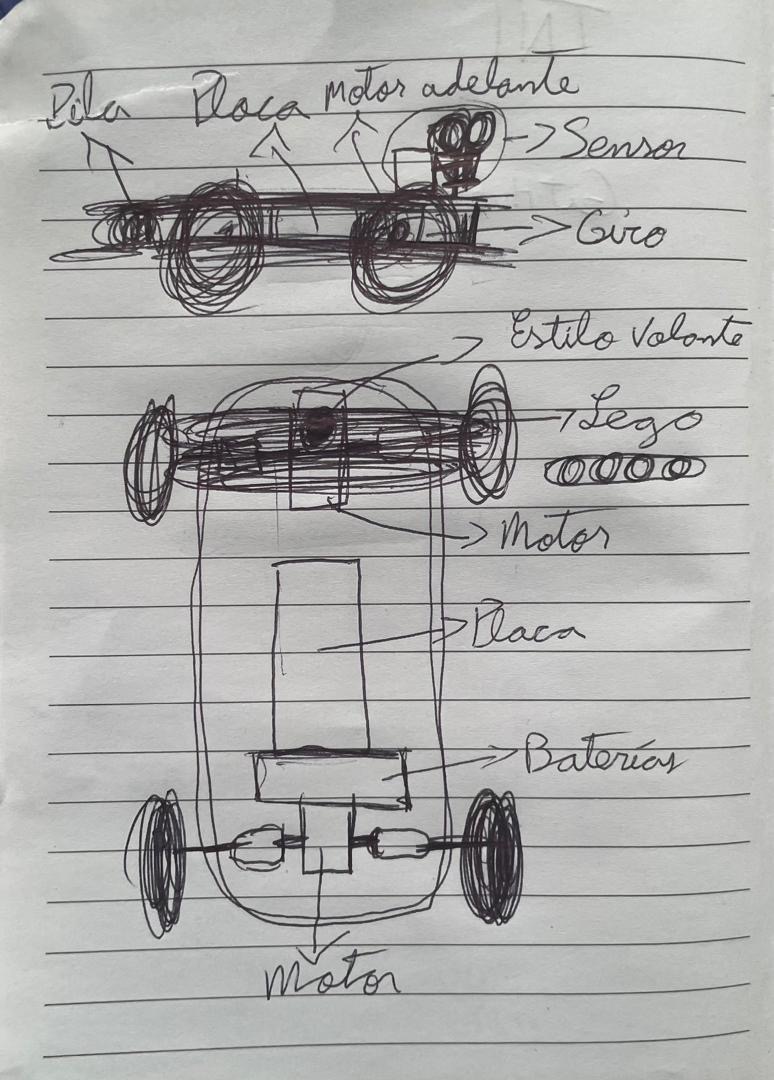 Pila Placa Motor adelante
Sensor
Giro
Estilo Volante
Lego
Motor
Placa
Baterías
Motor